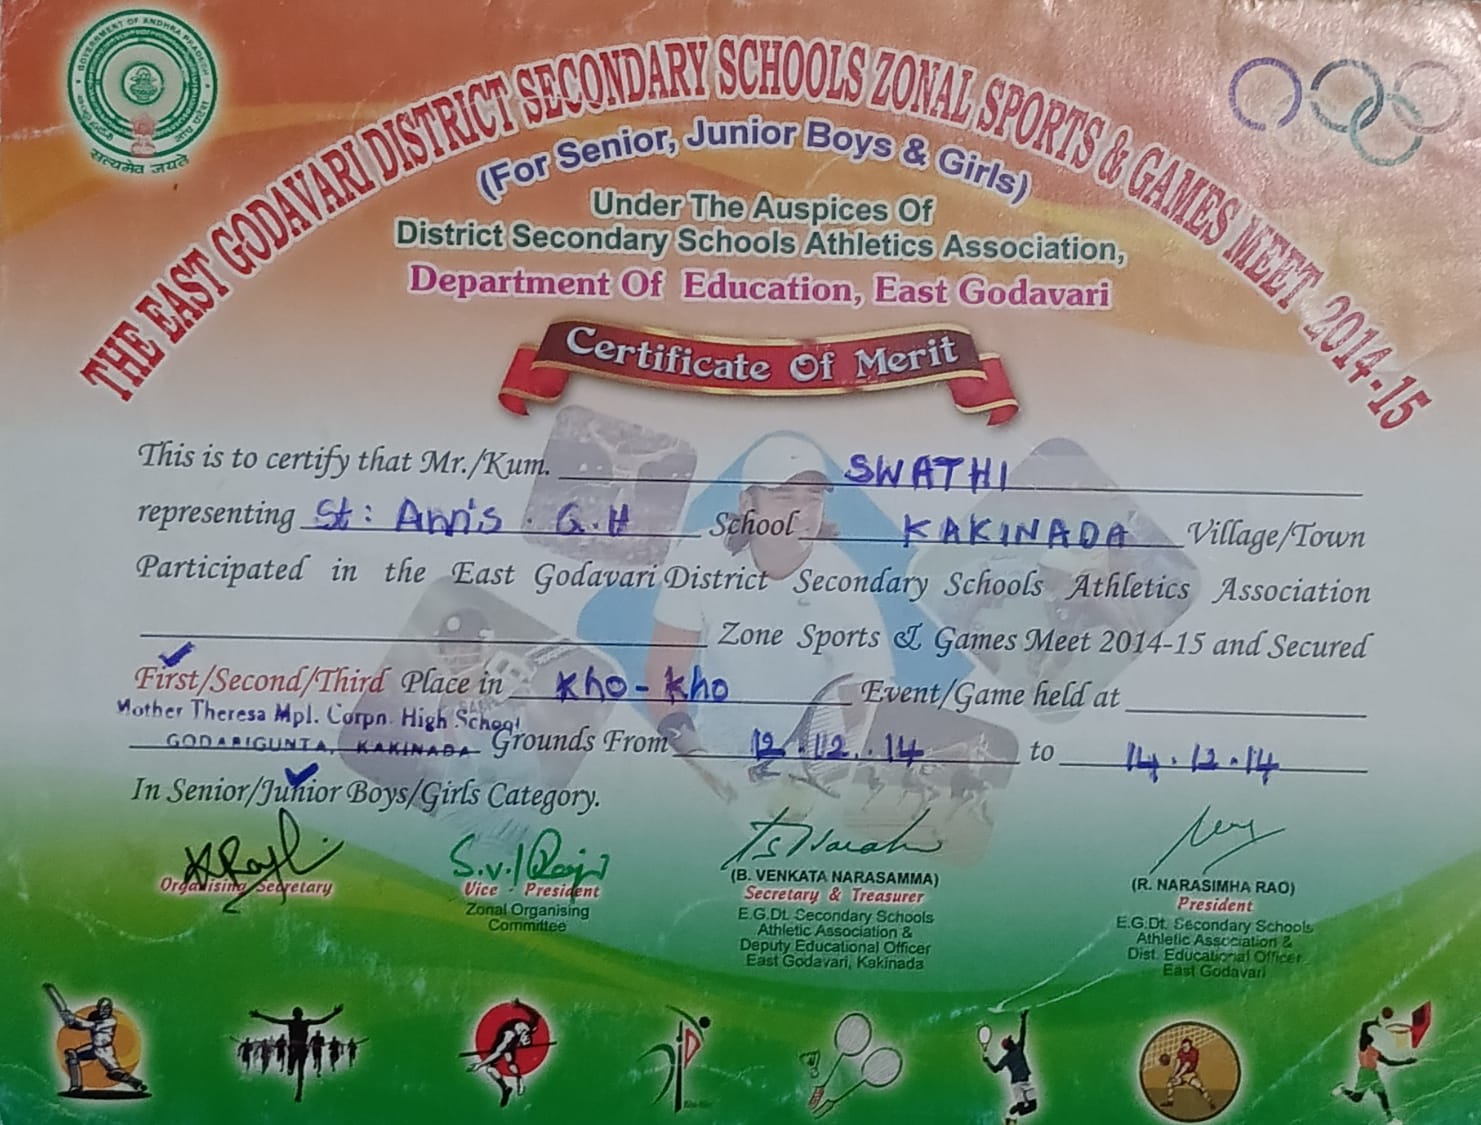 THE EAST GODAVARI DISTRICT SECONDARY SCHOOLS ZONAL SPORTS & GAMES MEET 2014-15
GOVERNMENT OF ANDHRA PRADESH
सत्यमेव जयते
(For Senior, Junior Boys & Girls)
Under The Auspices Of
District Secondary Schools Athletics Association,
Department Of Education, East Godavari
Certificate Of Merit
This is to certify that Mr./Kum. SWATHI
representing St: Ann's. G.H School KAKINADA Village/Town
Participated in the East Godavari District Secondary Schools Athletics Association
Zone Sports & Games Meet 2014-15 and Secured
First/Second/Third Place in Kho-Kho Event/Game held at
Mother Theresa Mpl. Corpn. High School
GODARIGUNTA, KAKINADA Grounds From 12.12.14 to 14.12.14
In Senior/Junior Boys/Girls Category.
Organising Secretary
Vice - President
Zonal Organising
Committee
(B. VENKATA NARASAMMA)
Secretary & Treasurer
E.G.Dt. Secondary Schools
Athletic Association &
Deputy Educational Officer
East Godavari, Kakinada
(R. NARASIMHA RAO)
President
E.G.Dt. Secondary Schools
Athletic Association &
Dist. Educational Officer
East Godavari